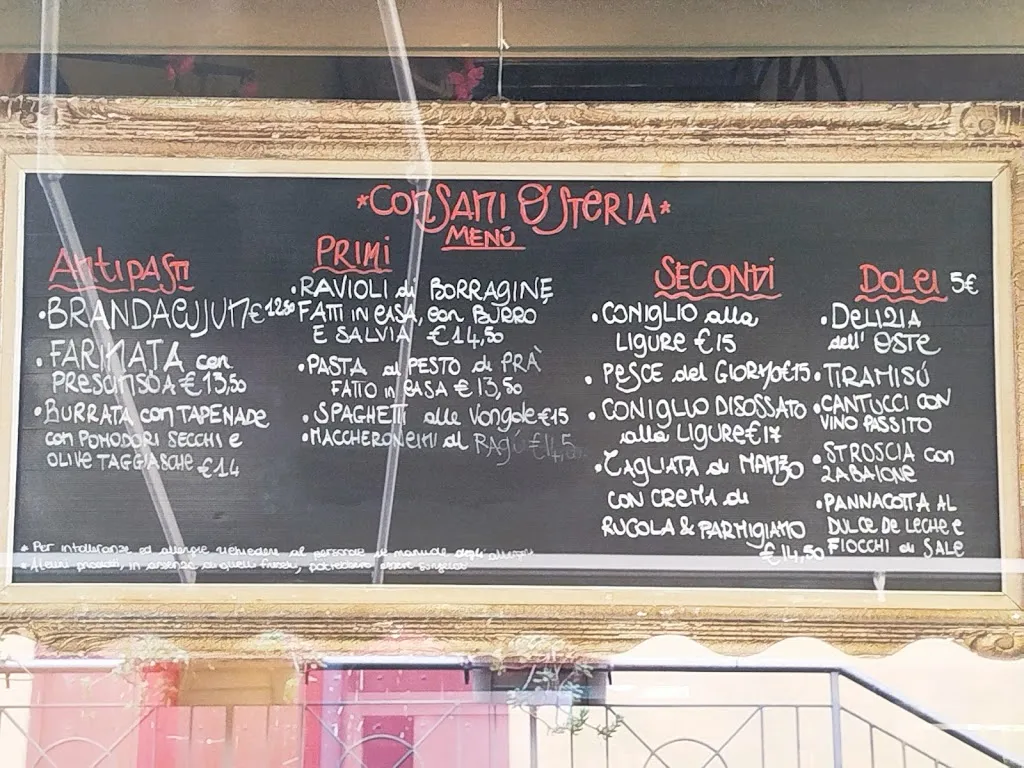 *ConSANI OSTERIA*
MENÙ
Antipasti
BRANDACUJUN €12,50
FARINATA con
PRESCINSOA €13,50
BURRATA con TAPENADE
con POMODORI SECCHI e
OLIVE TAGGIASCHE €14
PRIMI
RAVIOLI di BORRAGINE
FATTI IN CASA, con BURRO
E SALVIA €14,50
PASTA al PESTO di PRÀ
FATTO in CASA €13,50
SPAGHETTI alle Vongole €15
MACCHERONCINI al RAGÙ €14,5
SECONDI
CONIGLIO alla
LIGURE €15
PESCE del GIORNO €15
CONIGLIO DISOSSATO
alla LIGURE €17
TAGLIATA di MANZO
CON CREMA di
RUCOLA & PARMIGIANO
€14,50
DOLCI 5€
DELIZIA
dell' OSTE
TIRAMISÙ
CANTUCCI CON
VINO PASSITO
STROSCIA con
ZABAIONE
PANNACOTTA AL
DULCE DE LECHE e
FIOCCHI di SALE
* Per intolleranze ed allergie richiedere al personale il manuale degli allergeni
* Alcuni prodotti, in assenza di quelli freschi, potrebbero essere surgelati